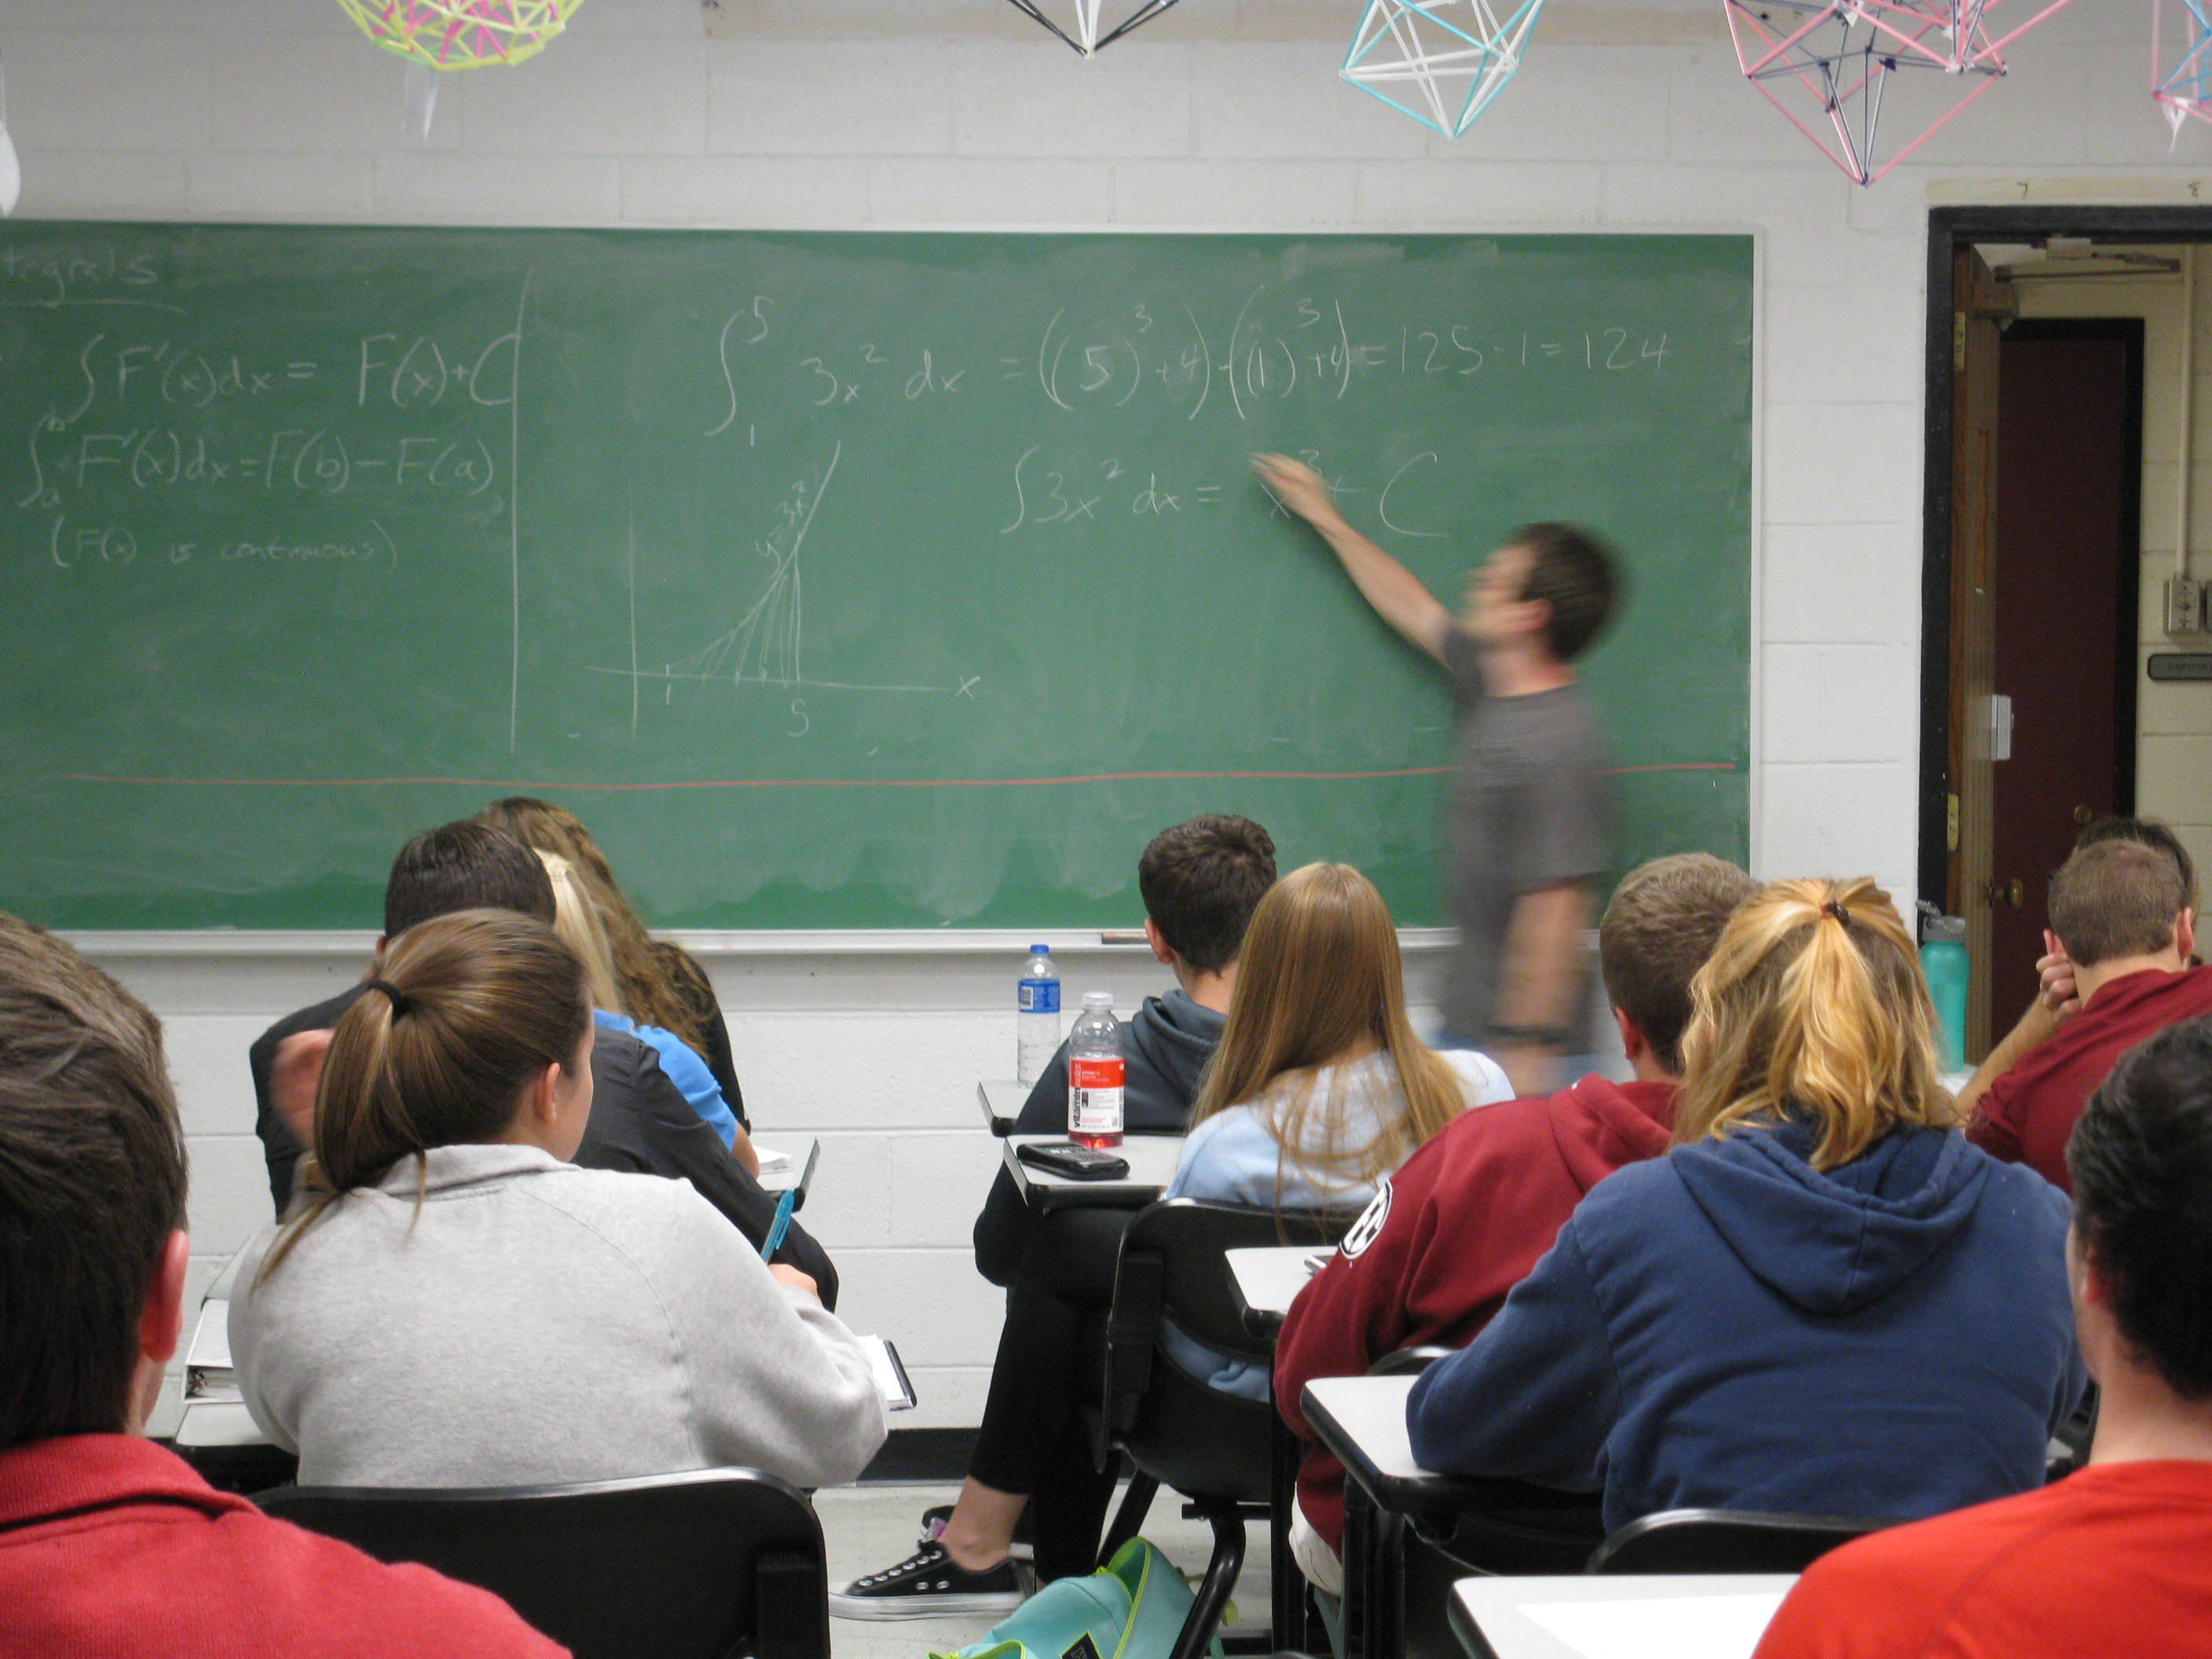 tegrals
∫F'(x)dx = F(x)+C
∫ₐᵇ F'(x)dx = F(b) - F(a)
(F(x) is continuous)
∫₁⁵ 3x² dx = ((5)³+4) - ((1)³+4) = 125 - 1 = 124
∫3x² dx = x³ + C
y=3x²
x
1
5
vitaminwater